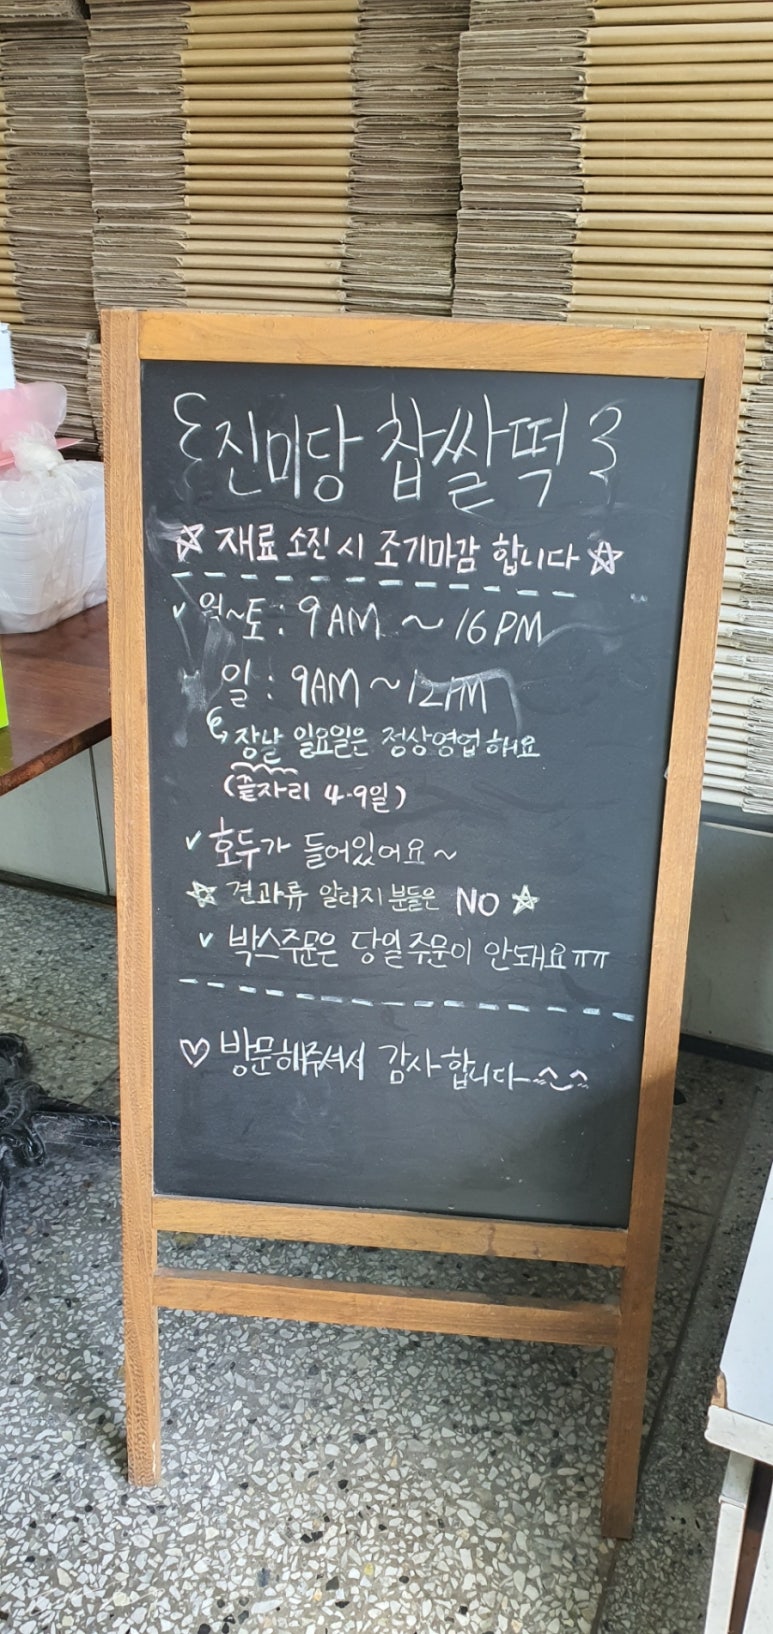 진미당 찹쌀떡
☆ 재료 소진 시 조기마감 합니다 ☆
✓ 월~토 : 9AM ~ 16PM
일 : 9AM ~ 12PM
장날 일요일은 정상영업 해요
(끝자리 4·9일)
✓ 호두가 들어있어요~
☆ 견과류 알러지 분들은 NO ☆
✓ 박스주문은 당일주문이 안돼요ㅠㅠ
♡ 방문해주셔서 감사합니다~^^